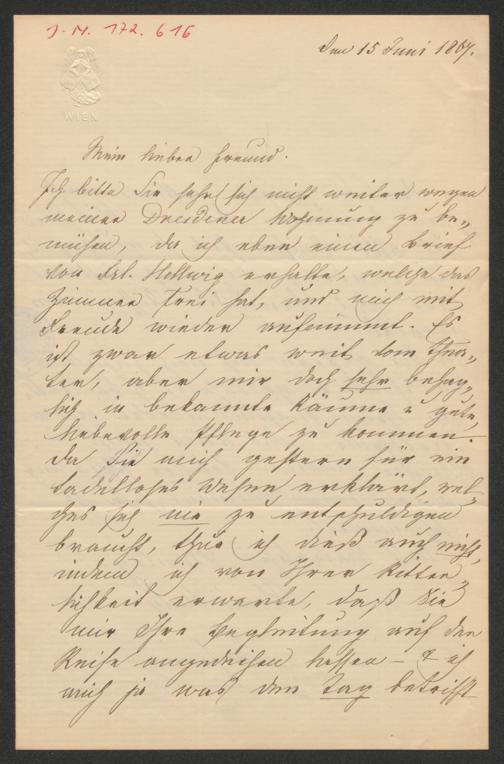 J.N. 172.616
Den 15 Juni 1867.
WIEN
Mein lieber Freund.
Ich bitte Sie sehr sich nicht weiter wegen
meiner Dresdener Wohnung zu be„
mühen, da ich eben einen Brief
von Frl. Hellwig erhalte, welche das
Zimmer frei hat, und mich mit
Freude wieder aufnimmt. Es
ist zwar etwas weit vom Thea„
ter, aber mir doch sehr behag„
lich in bekannte Räume u gute,
liebevolle Pflege zu kommen.
Da Sie mich gestern für ein
tadelloses Wesen erklärt, wel„
ches sich nie zu entschuldigen
braucht, thue ich dieß auch nicht,
indem ich von Ihrer Ritter„
lichkeit erwarte, daß Sie
mir Ihre Begleitung auf der
Reise angedeihen lassen – & ich
mich ja was den Tag betrifft